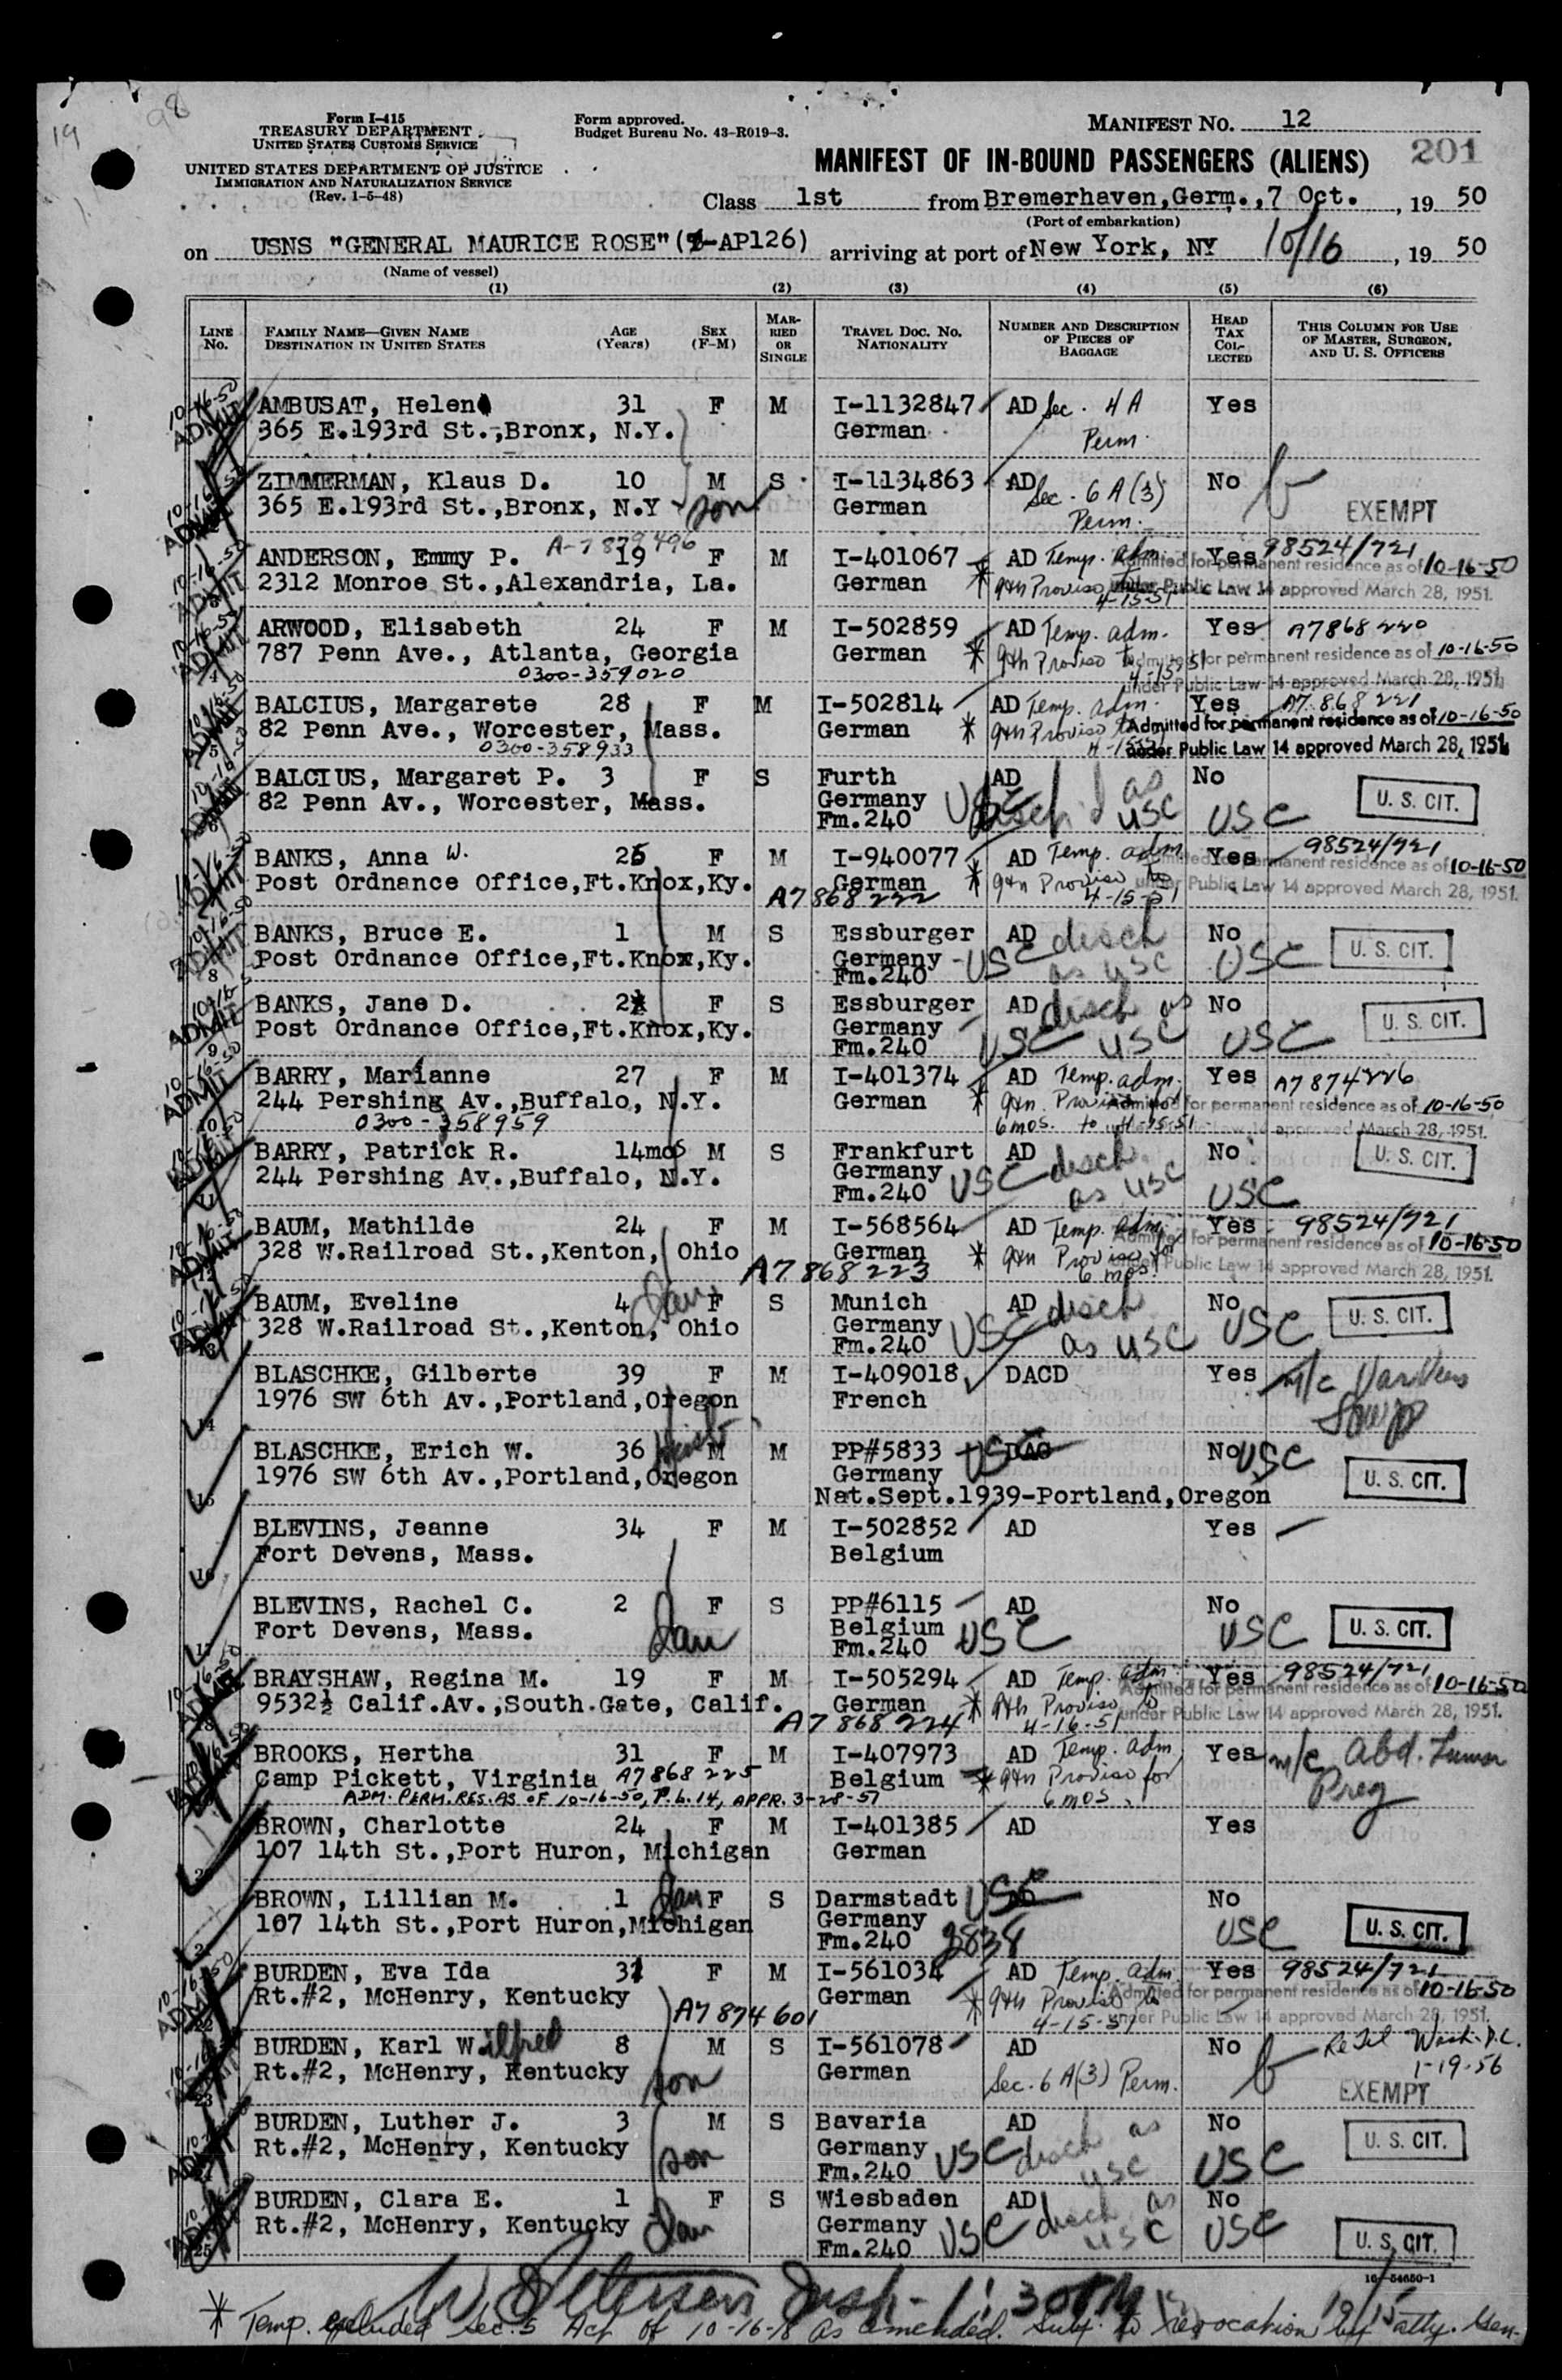 19
98
Form I-415
TREASURY DEPARTMENT
UNITED STATES CUSTOMS SERVICE
UNITED STATES DEPARTMENT OF JUSTICE
IMMIGRATION AND NATURALIZATION SERVICE
(Rev. 1-5-48)
Form approved.
Budget Bureau No. 43-R019-3.
MANIFEST NO. 12
MANIFEST OF IN-BOUND PASSENGERS (ALIENS) 201
Class 1st from Bremerhaven,Germ.,7 Oct., 19 50
(Port of embarkation)
on USNS "GENERAL MAURICE ROSE" (-AP126) arriving at port of New York, NY 10/16, 19 50
(Name of vessel)
(1) (2) (3) (4) (5) (6)
LINE No. FAMILY NAME—GIVEN NAME DESTINATION IN UNITED STATES AGE (Years) SEX (F-M) MARRIED OR SINGLE TRAVEL DOC. NO. NATIONALITY NUMBER AND DESCRIPTION OF PIECES OF BAGGAGE HEAD TAX COLLECTED THIS COLUMN FOR USE OF MASTER, SURGEON, AND U. S. OFFICERS
10-16-50 ADMIT AMBUSAT, Helen 31 F M I-1132847 AD Sec. 4A Yes
365 E.193rd St.,Bronx, N.Y. German Perm.
10-16-50 ADMIT ZIMMERMAN, Klaus D. 10 M S I-1134863 AD Sec. 6A(3) No
365 E.193rd St.,Bronx, N.Y son German Perm. EXEMPT
A-7879496
10-16-50 ADMIT ANDERSON, Emmy P. 19 F M I-401067 AD Temp. adm. Yes 98524/721
2312 Monroe St.,Alexandria, La. German * 9th Proviso to 4-15-51 Admitted for permanent residence as of 10-16-50 under Public Law 14 approved March 28, 1951.
10-16-50 ADMIT ARWOOD, Elisabeth 24 F M I-502859 AD Temp. adm. Yes A7868220
4 787 Penn Ave., Atlanta, Georgia German * 9th Proviso to 4-15-51 Admitted for permanent residence as of 10-16-50
0300-359020 under Public Law 14 approved March 28, 1951.
10-16-50 ADMIT BALCIUS, Margarete 28 F M I-502814 AD Temp. adm. Yes A7868221
5 82 Penn Ave., Worcester, Mass. German * 9th Proviso to Admitted for permanent residence as of 10-16-50
0300-358933 under Public Law 14 approved March 28, 1951.
BALCIUS, Margaret P. 3 F S Furth AD No
6 82 Penn Av., Worcester, Mass. Germany USC disch'd as USC USC U. S. CIT.
Fm.240
BANKS, Anna W. 25 F M I-940077 AD Temp. adm. Yes 98524/721
Post Ordnance Office,Ft.Knox,Ky. German * 9th Proviso to 4-15-51 Admitted for permanent residence as of 10-16-50
A7868222 under Public Law 14 approved March 28, 1951.
BANKS, Bruce E. 1 M S Essburger AD disch as USC No
8 Post Ordnance Office,Ft.Knox,Ky. Germany USC USC U. S. CIT.
Fm.240
BANKS, Jane D. 2 F S Essburger AD disch as USC No
9 Post Ordnance Office,Ft.Knox,Ky. Germany USC USC U. S. CIT.
Fm.240
BARRY, Marianne 27 F M I-401374 AD Temp. adm. Yes A7874226
10 244 Pershing Av.,Buffalo, N.Y. German * 9th Proviso for 6 mos. to 4-15-51 Admitted for permanent residence as of 10-16-50
0300-358959 March 28, 1951.
BARRY, Patrick R. 14mos M S Frankfurt AD disch as USC No
11 244 Pershing Av.,Buffalo, N.Y. Germany USC USC U. S. CIT.
Fm.240
BAUM, Mathilde 24 F M I-568564 AD Temp. adm. Yes 98524/721
12 328 W.Railroad St.,Kenton, Ohio German * 9th Proviso for 6 mos. Admitted for permanent residence as of 10-16-50
A7868223 under Public Law 14 approved March 28, 1951.
BAUM, Eveline 4 F S Munich AD disch as USC No
13 328 W.Railroad St.,Kenton, Ohio dau Germany USC USC U. S. CIT.
Fm.240
BLASCHKE, Gilberte 39 F M I-409018 DACD Yes m/c
14 1976 SW 6th Av.,Portland,Oregon French
BLASCHKE, Erich W. 36 M M PP#5833 USC No USC
15 1976 SW 6th Av.,Portland,Oregon Germany U. S. CIT.
Nat.Sept.1939-Portland,Oregon
BLEVINS, Jeanne 34 F M I-502852 AD Yes
16 Fort Devens, Mass. Belgium
BLEVINS, Rachel C. 2 F S PP#6115 AD No
17 Fort Devens, Mass. dau Belgium USC USC U. S. CIT.
Fm.240
BRAYSHAW, Regina M. 19 F M I-505294 AD Temp. adm. Yes 98524/721
18 9532½ Calif.Av.,South Gate, Calif. German * 9th Proviso to 4-16-51 Admitted for permanent residence as of 10-16-50
A7868224 under Public Law 14 approved March 28, 1951.
BROOKS, Hertha 31 F M I-407973 AD Temp. adm Yes m/c Abd. Tumor
Camp Pickett, Virginia A7868225 Belgium * 9th Proviso for 6 mos. Preg
ADM. PERM. RES. AS OF 10-16-50, P.L. 14, APPR. 3-28-51
BROWN, Charlotte 24 F M I-401385 AD Yes
107 14th St.,Port Huron, Michigan German
BROWN, Lillian M. 1 dau F S Darmstadt USC AD No
21 107 14th St.,Port Huron,Michigan Germany USC U. S. CIT.
Fm.240 2838
BURDEN, Eva Ida 31 F M I-561034 AD Temp. adm. Yes 98524/721
22 Rt.#2, McHenry, Kentucky German * 9th Proviso to 4-15-51 Admitted for permanent residence as of 10-16-50
A7874601 under Public Law 14 approved March 28, 1951.
BURDEN, Karl Wilfred 8 M S I-561078 AD No Re Tel Wash. D.C.
23 Rt.#2, McHenry, Kentucky son German Sec. 6A(3) Perm. 1-19-56
EXEMPT
BURDEN, Luther J. 3 M S Bavaria AD disch as USC No
Rt.#2, McHenry, Kentucky son Germany USC USC U. S. CIT.
Fm.240
BURDEN, Clara E. 1 F S Wiesbaden AD disch as USC No
25 Rt.#2, McHenry, Kentucky dau Germany USC USC U. S. CIT.
Fm.240
16—54650-1
W Peterson Insp. 1:30 PM
* Temp. excluded Sec. 5 Act of 10-16-18 as amended. Subj. to revocation by Atty. Gen.